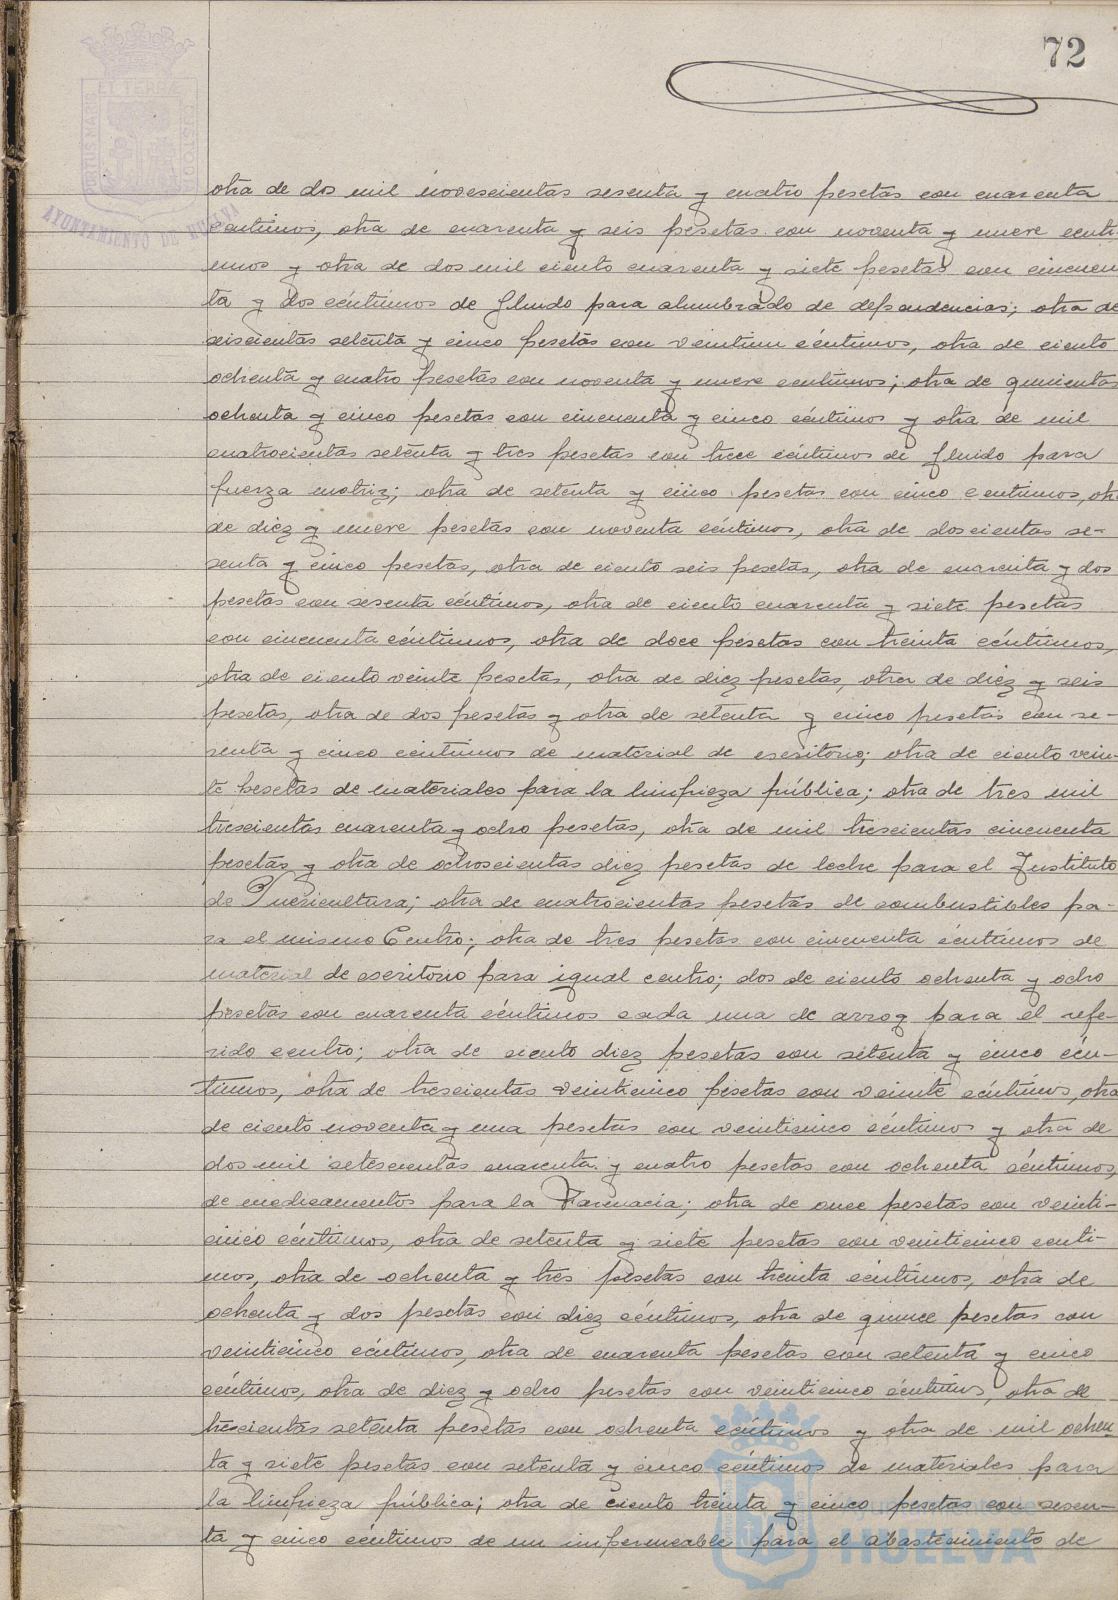 72
PORTUS MARIS ET TERRÆ CUSTODIA
AYUNTAMIENTO DE HUELVA
otra de dos mil novescientas sesenta y cuatro pesetas con cuarenta
centimos, otra de cuarenta y seis pesetas con noventa y nueve centi
mos y otra de dos mil ciento cuarenta y siete pesetas con cincuen
ta y dos céntimos de fluido para alumbrado de dependencias; otra de
seiscientas setenta y cinco pesetas con veintiun céntimos, otra de ciento
ochenta y cuatro pesetas con noventa y nueve centimos; otra de quinientas
ochenta y cinco pesetas con cincuenta y cinco céntimos y otra de mil
cuatrocientas setenta y tres pesetas con trece céntimos de fluido para
fuerza motriz; otra de setenta y cinco pesetas con cinco centimos, otr
de diez y nueve pesetas con noventa céntimos, otra de doscientas se-
senta y cinco pesetas, otra de ciento seis pesetas, otra de cuarenta y dos
pesetas con sesenta céntimos, otra de ciento cuarenta y siete pesetas
con cincuenta céntimos, otra de doce pesetas con treinta céntimos,
otra de ciento veinte pesetas, otra de diez pesetas, otra de diez y seis
pesetas, otra de dos pesetas y otra de setenta y cinco pesetas con se-
senta y cinco céntimos de material de escritorio; otra de ciento vein-
te pesetas de materiales para la limpieza pública; otra de tres mil
trescientas cuarenta y ocho pesetas, otra de mil trescientas cincuenta
pesetas y otra de ochoscientas diez pesetas de leche para el Instituto
de Puericultura; otra de cuatrocientas pesetas de combustibles pa-
ra el mismo Centro; otra de tres pesetas con cincuenta céntimos de
material de escritorio para igual centro; dos de ciento ochenta y ocho
pesetas con cuarenta céntimos cada una de arroz para el refe-
rido centro; otra de ciento diez pesetas con setenta y cinco cén-
timos, otra de trescientas veinticinco pesetas con veinte céntimos, otra
de ciento noventa y una pesetas con veinticinco céntimos y otra de
dos mil setescientas cuarenta y cuatro pesetas con ochenta céntimos,
de medicamentos para la Farmacia; otra de once pesetas con veinti-
cinco céntimos, otra de setenta y siete pesetas con veinticinco centi-
mos, otra de ochenta y tres pesetas con treinta céntimos, otra de
ochenta y dos pesetas con diez céntimos, otra de quince pesetas con
veinticinco céntimos, otra de cuarenta pesetas con setenta y cinco
céntimos, otra de diez y ocho pesetas con veinticinco céntimos, otra de
trescientas setenta pesetas con ochenta céntimos y otra de mil ochen-
ta y siete pesetas con setenta y cinco céntimos de materiales para
la limpieza pública; otra de ciento treinta y cinco pesetas con sesen-
ta y cinco céntimos de un impermeable para el abastecimiento de
Ayuntamiento de
HUELVA